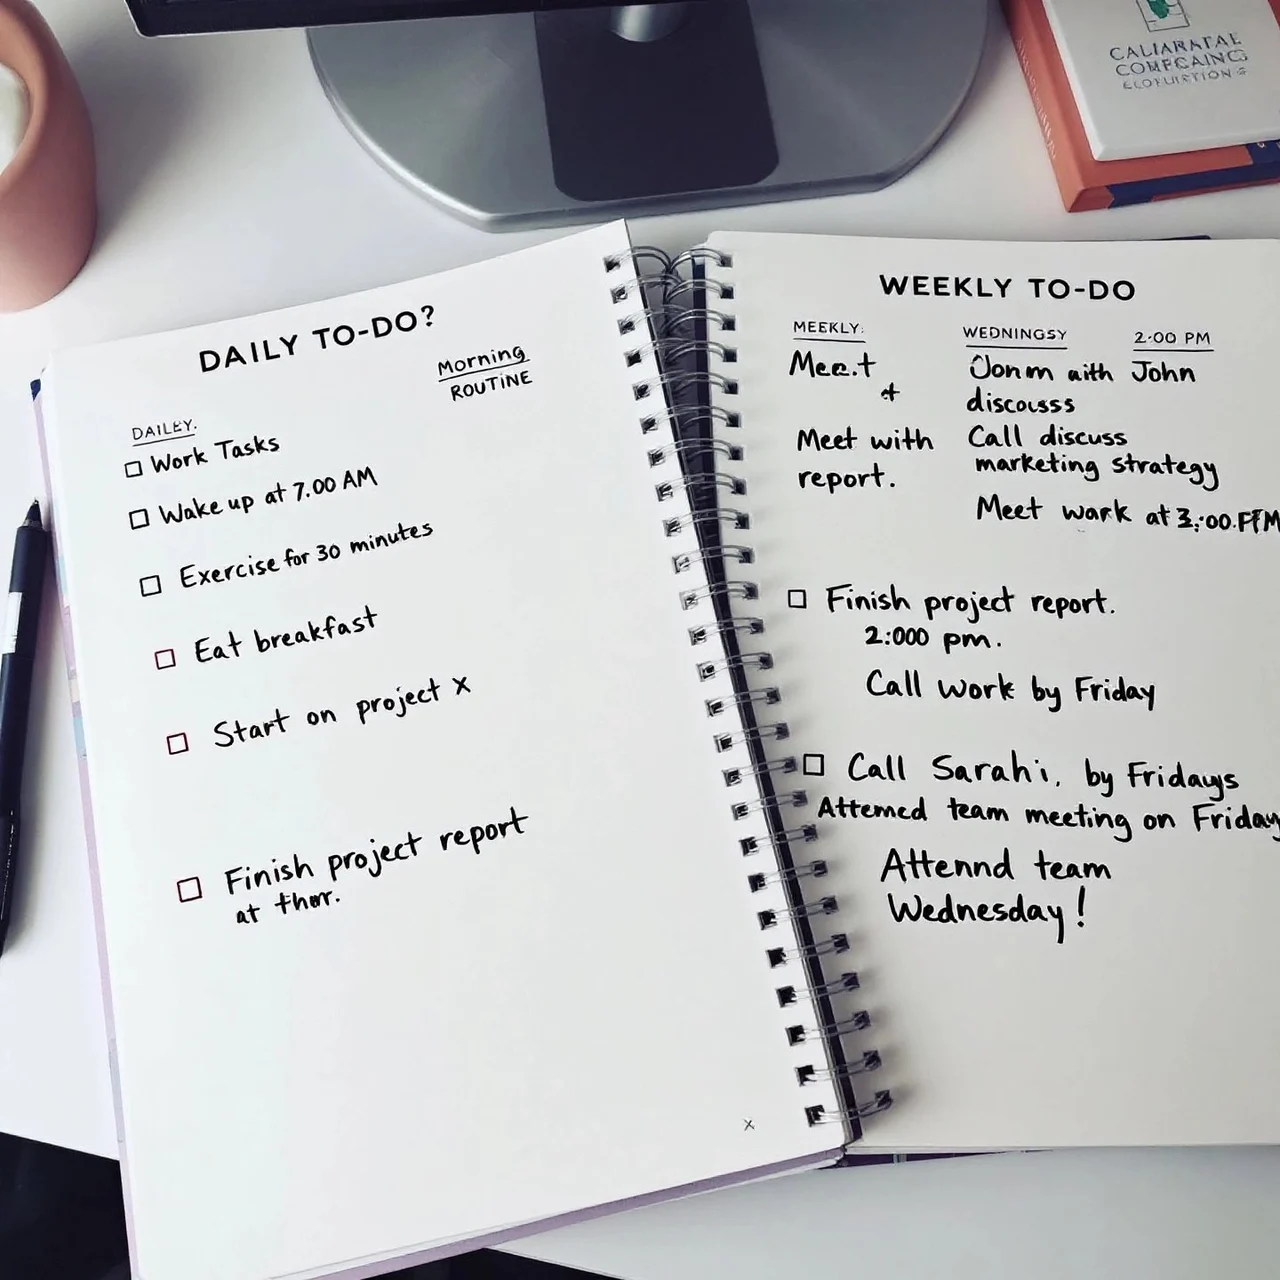 CALIARATAE
COMPCAINCS
DAILY TO-DO?
Morning
ROUTINE
DAILEY.
Work Tasks
Wake up at 7.00 AM
Exercise for 30 minutes
Eat breakfast
Start on project x
Finish project report
at thor.
x
WEEKLY TO-DO
MEEKLY:
WEDNINGSY
2:00 PM
Mee.t
Jonm aith John
+
discousss
Meet with
Call discuss
report.
marketing strategy
Meet wark at
Finish project report.
2:000 pm.
Call work by Friday
Call Sarah'i, by Fridays
Attemed team meeting on Friday
Attennd team
Wednesday!